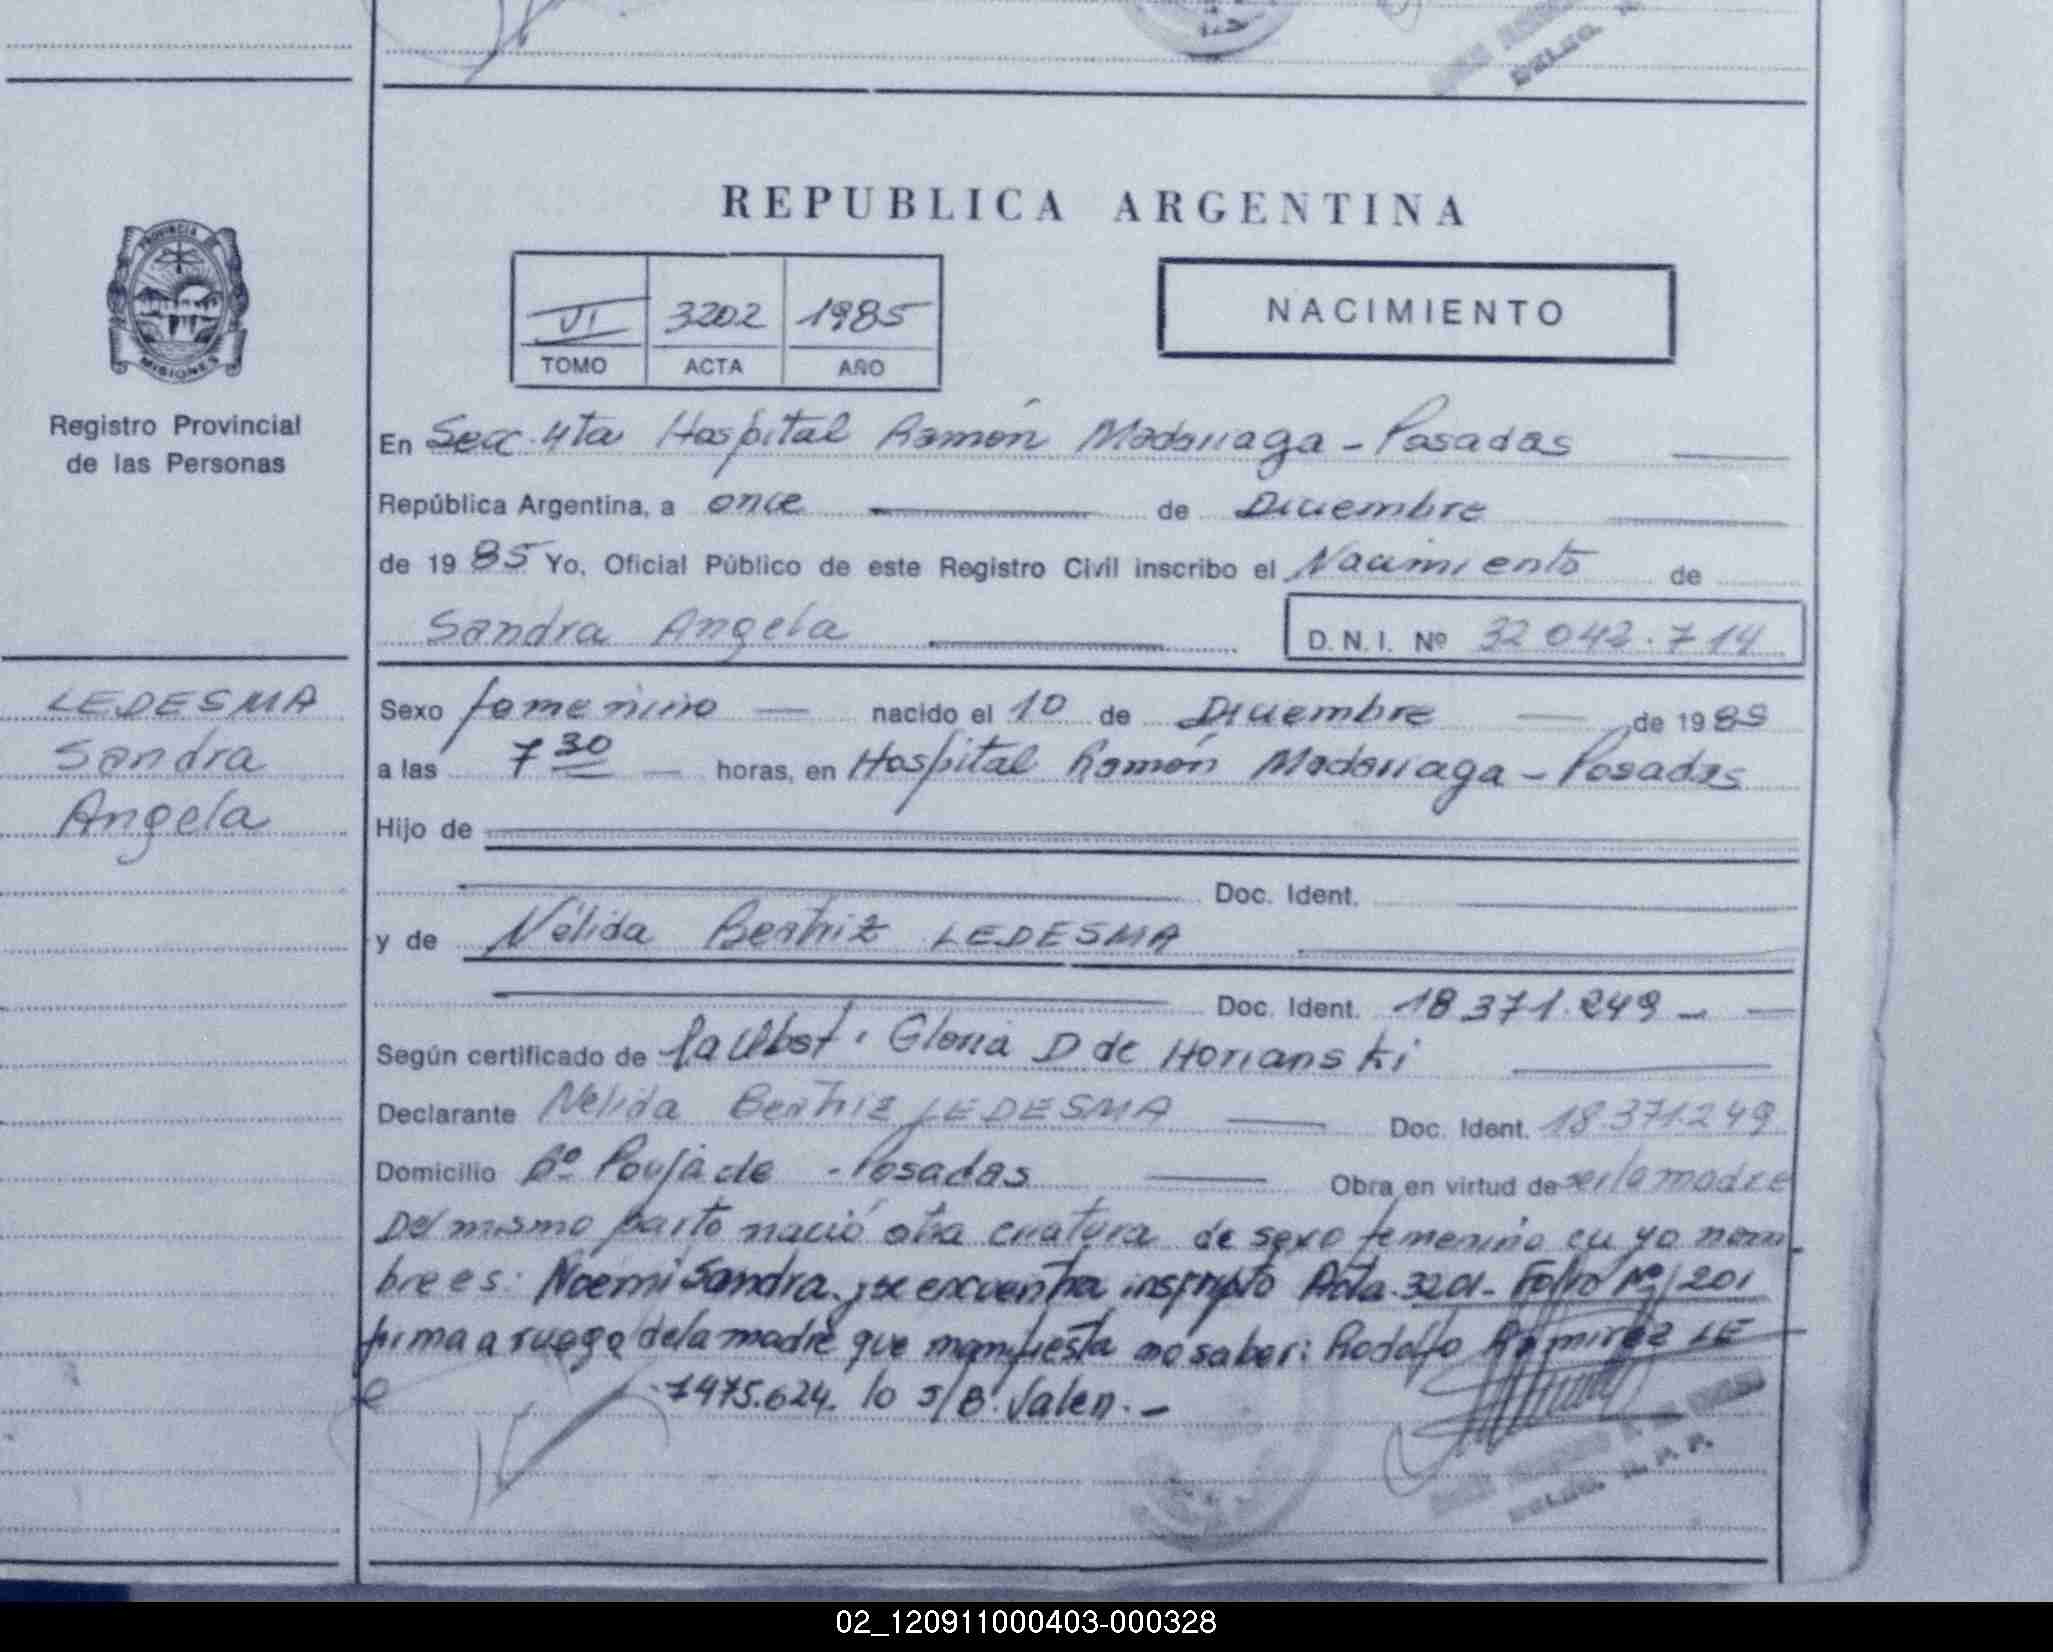 REPUBLICA ARGENTINA
PROVINCIA DE
MISIONES
Registro Provincial
de las Personas
VI 3202 1985
TOMO ACTA AÑO
NACIMIENTO
En Secc. 4ta Hospital Ramón Madariaga - Posadas
República Argentina, a once de Diciembre
de 1985 Yo, Oficial Público de este Registro Civil inscribo el Nacimiento de
Sandra Angela D.N.I. Nº 32 042.714
LEDESMA
Sandra
Angela
Sexo femenino nacido el 10 de Diciembre de 1985
a las 7 30 horas, en Hospital Ramón Madariaga - Posadas
Hijo de
Doc. Ident.
y de Nélida Beatriz LEDESMA
Doc. Ident. 18 371.249
Según certificado de la Obst. Gloria D de Horianski
Declarante Nélida Beatriz LEDESMA Doc. Ident. 18.371.249
Domicilio Bº Poujade - Posadas Obra en virtud de ser la madre
Del mismo parto nació otra criatura de sexo femenino cuyo nom-
bre es: Noemi Sandra, y se encuentra inscripto Acta 3201 - Folio Nº 201
firma a ruego de la madre que manifiesta no saber: Rodolfo Ramirez LE
7475.624. lo s/B. Valen. -
02_120911000403-000328